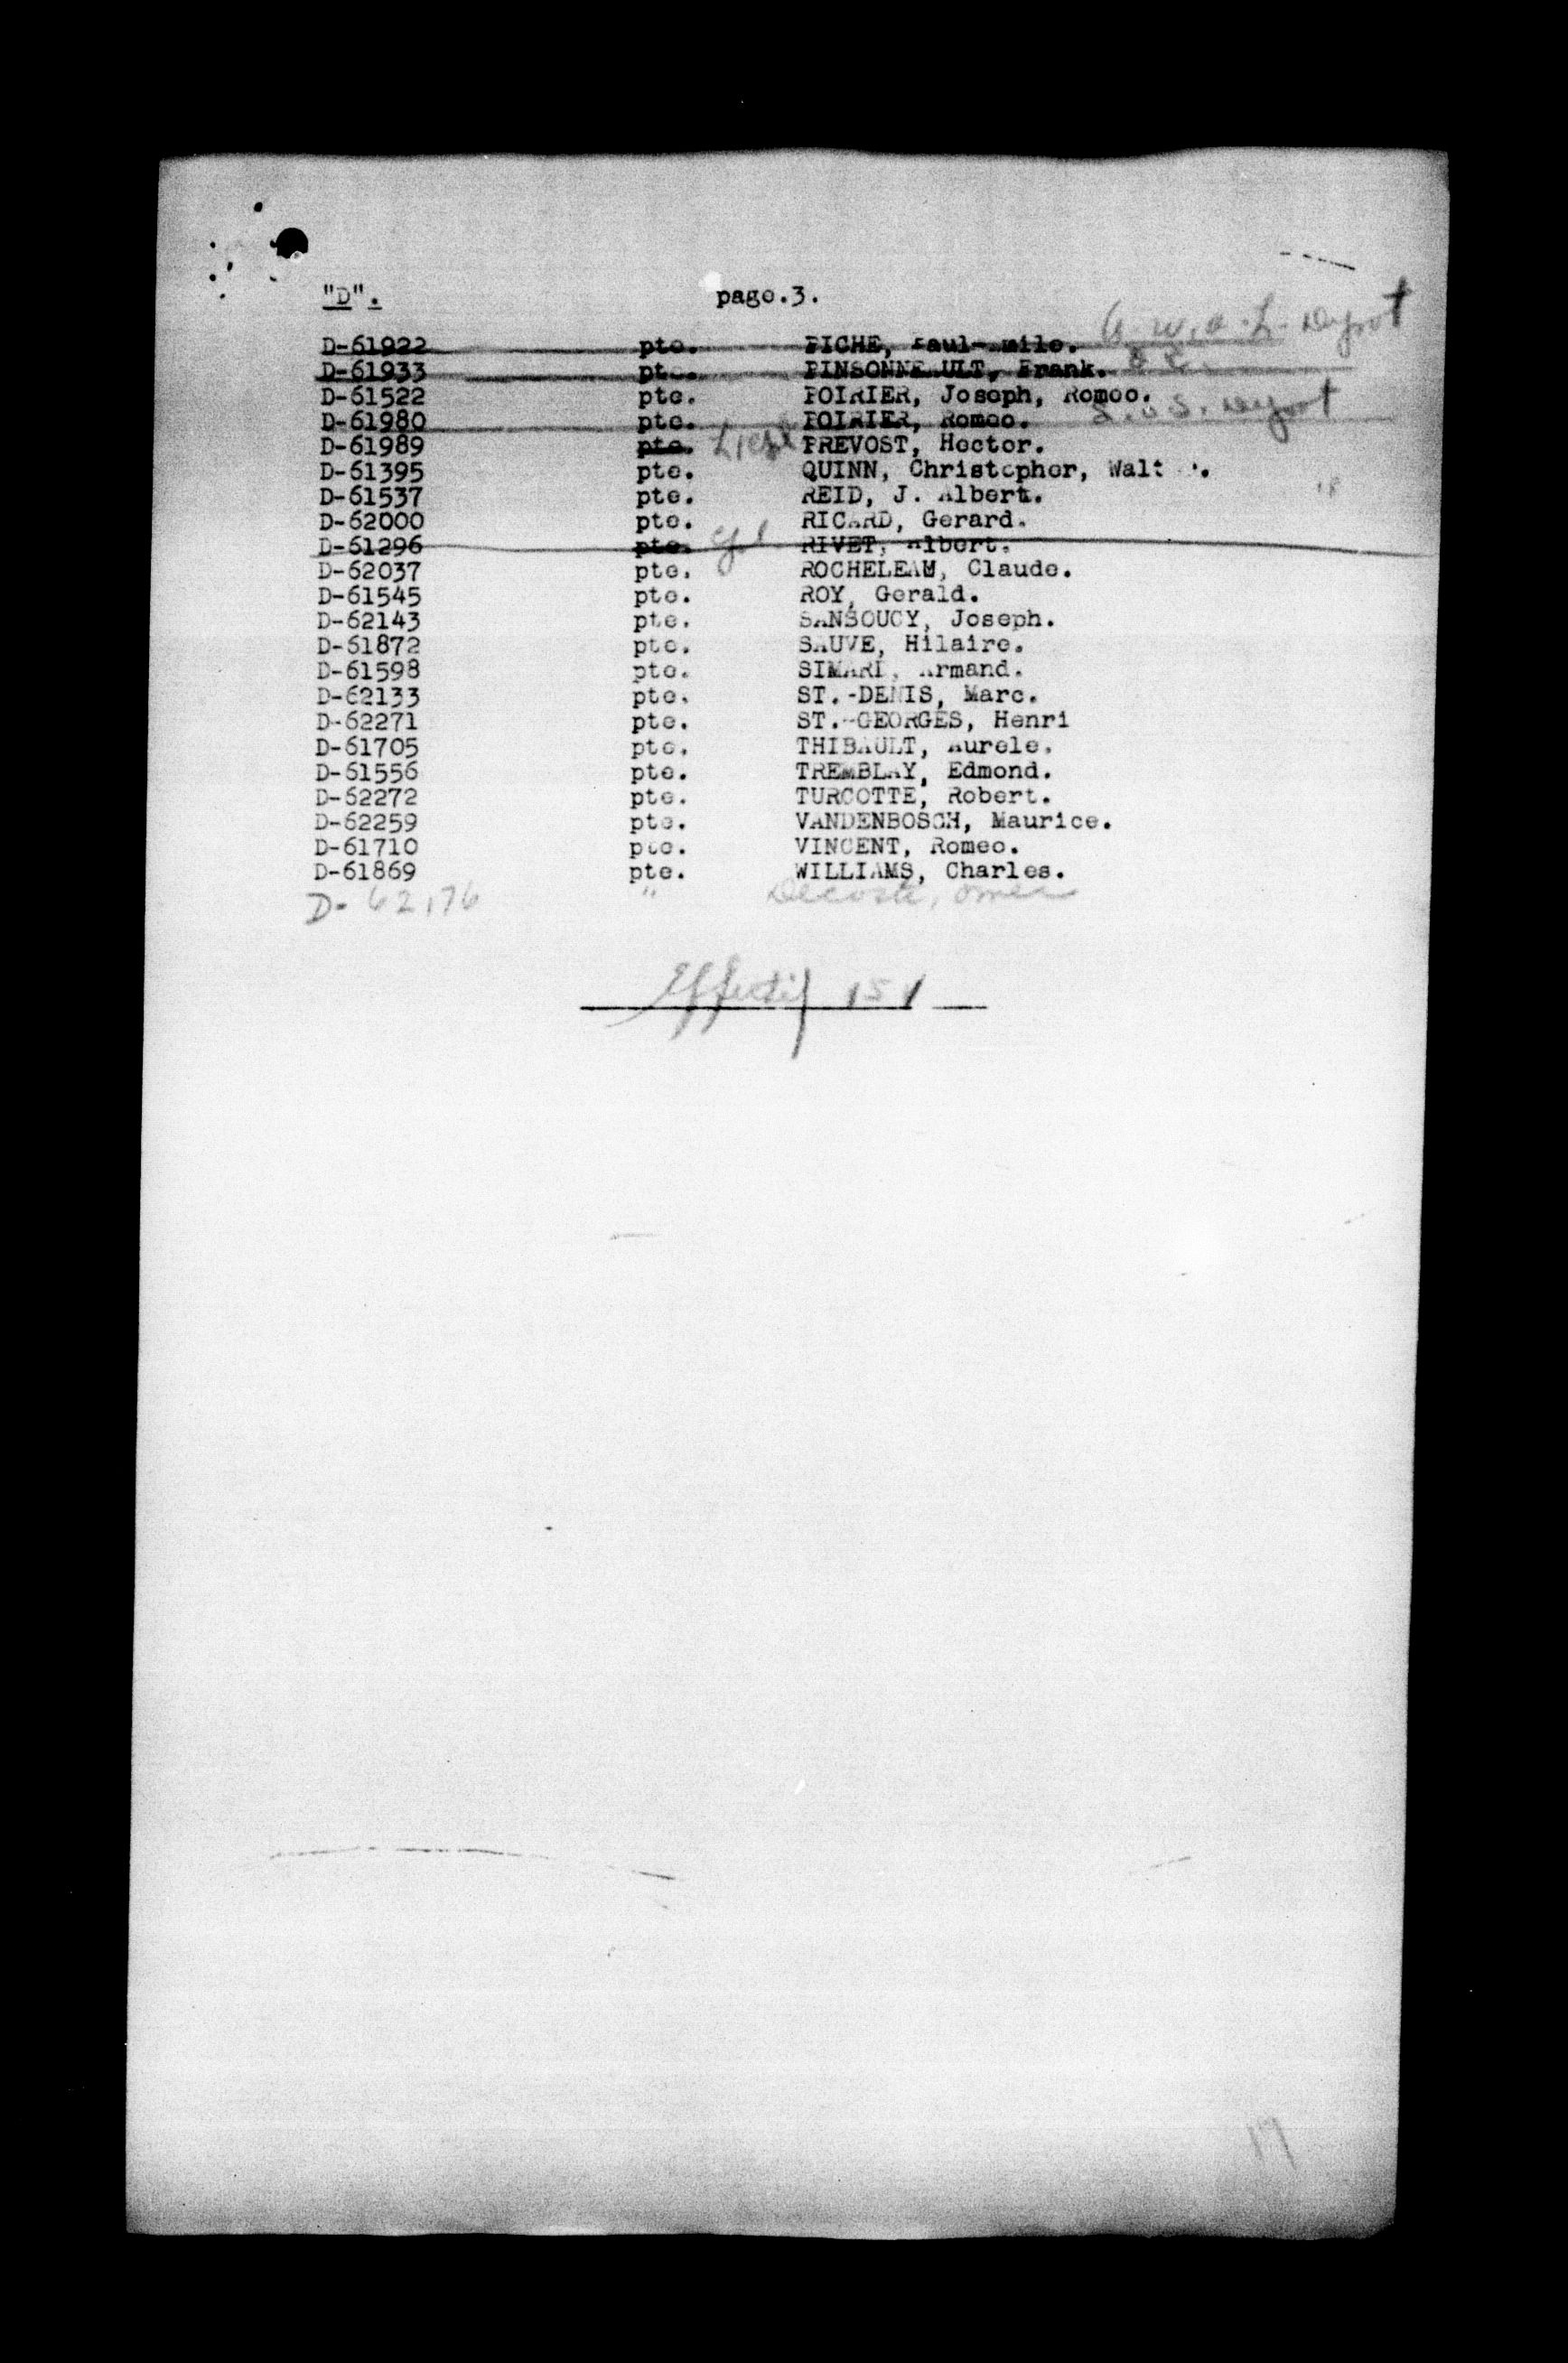 "D". page.3.
D-61922 pte. PICHE, Paul-Emile. A.W.O.L. Depot
D-61933 pte. PINSONNEAULT, Frank.
D-61522 pte. POIRIER, Joseph, Romeo.
D-61980 pte. POIRIER, Romeo. S.O.S. Depot
D-61989 pte. PREVOST, Hector.
D-61395 pte. QUINN, Christopher,
D-61537 pte. REID, J. Albert.
D-62000 pte. RICARD, Gerard.
D-61296 pte. Cpl RIVET, Albert.
D-62037 pte. ROCHELEAU, Claude.
D-61545 pte. ROY, Gerald.
D-62143 pte. SANSOUCY, Joseph.
D-61872 pte. SAUVE, Hilaire.
D-61598 pte. SIMARD, Armand.
D-62133 pte. ST.-DENIS, Marc.
D-62271 pte. ST.-GEORGES, Henri
D-61705 pte. THIBAULT, Aurele.
D-61556 pte. TREMBLAY, Edmond.
D-62272 pte. TURCOTTE, Robert.
D-62259 pte. VANDENBOSCH, Maurice.
D-61710 pte. VINCENT, Romeo.
D-61869 pte. WILLIAMS, Charles.
D-62176 " Decoste, Omer
Effectif 151
17